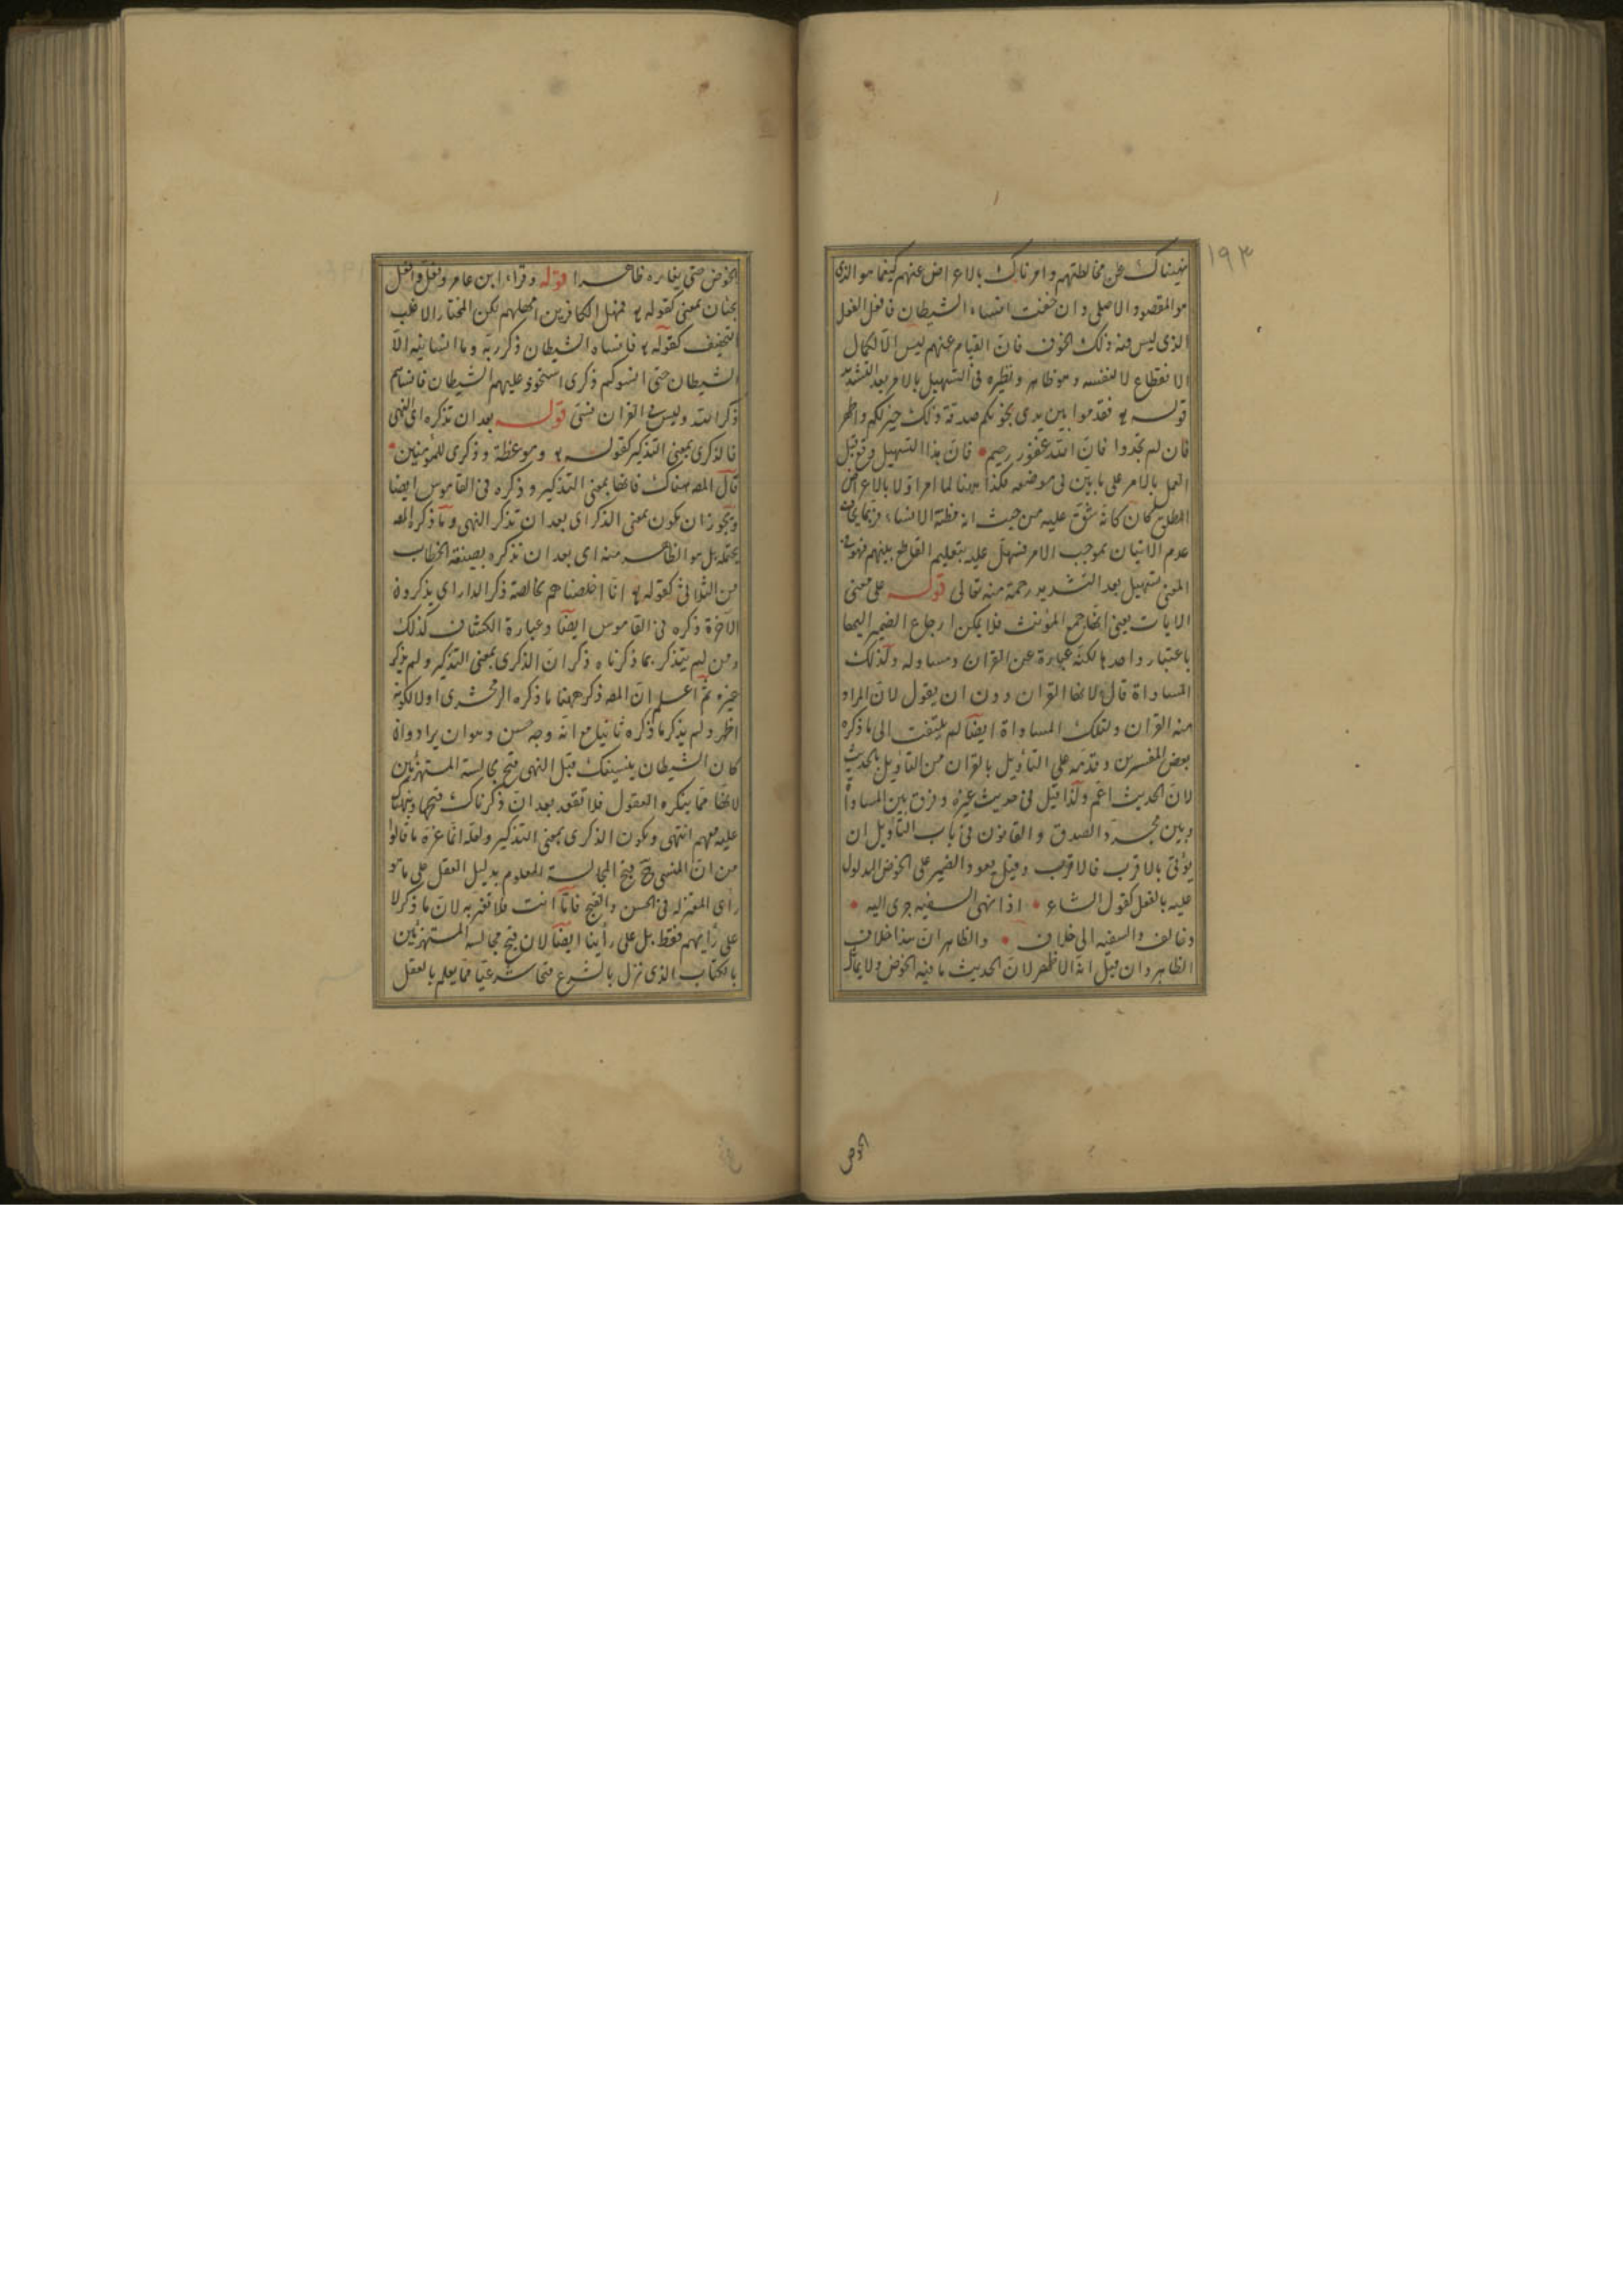 ١٩٣
نهيناك عن مخالطتهم وامرناك بالاعراض عنهم كيفما هو الذى
هو المقصود الاصلى وان خفت انساء الشيطان فافعل الفعل
الذى ليس فيه ذلك الخوف فان القيام عنهم ليس الا لكمال
الانقطاع لا لنفسه وهو ظاهر ونظيره فى التسهيل بالامر بعد التشديد
قوله تع فقدموا بين يدى نجويكم صدقة ذلك خير لكم واطهر
فان لم تجدوا فان الله غفور رحيم فان هذا التسهيل وقع قبل
العمل بالامر على ما بين فى موضعه فكذا ههنا لما امر اولا بالاعراض
المطلق كان كانه شق عليه من حيث انه مظنة الانساء فربما يخاف
عدم الاتيان بموجب الامر فسهل عليه بتعليم القاطع بينهم فهو فى
المعنى تسهيل بعد التشديد رحمة منه تعالى قوله على معنى
الايات يعنى انها جمع المؤنث فلا يمكن ارجاع الضمير اليها
باعتبار واحدها لكنه عبارة عن القران ومساو له وكذلك
المساواة قال لانها القران دون ان يقول لان المراد
منه القران ولتلك المساواة ايضا لم يلتفت الى ما ذكره
بعض المفسرين وقدمه على التأويل بالقران من التأويل بالحديث
لان الحديث اعم ولذا قيل فى حديث غيره وفرق بين المساواة
وبين مجرد الصدق والقانون فى باب التأويل ان
يؤتى بالاقرب فالاقرب وقيل يعود الضمير على الخوض المدلول
عليه بالفعل كقول الشاعر اذا نهى السفيه جرى اليه
وخالف والسفيه الى خلاف والظاهر ان هذا خلاف
الظاهر وان قيل انه الاظهر لان الحديث ما فيه الخوض ولا يقال
الخوض
الخوض حتى يغايره ظاهرا قوله وقراء ابن عامر وفعل وافعل
يجئان بمعنى كقوله تع فمهل الكافرين امهلهم لكن المختار الاغلب
التخفيف كقوله تع فانساه الشيطان ذكر ربه وما انسانيه الا
الشيطان حتى انسوكم ذكرى استحوذ عليهم الشيطان فانساهم
ذكر الله وليس فى القران نسى قوله بعد ان تذكره اى النهى
فالذكرى بمعنى التذكير كقوله تع وموعظة وذكرى للمؤمنين
قال المص هناك فانها بمعنى التذكير وذكره فى القاموس ايضا
ويجوز ان يكون بمعنى الذكر اى بعد ان تذكر النهى وما ذكره المص
يحتمله بل هو الظاهر منه اى بعد ان تذكره بصيغة الخطاب
من الثلاثى كقوله تع انا اخلصناهم بخالصة ذكر الدار اى يذكرون
الاخرة ذكره فى القاموس ايضا وعبارة الكشاف كذلك
ومن لم يتذكر بما ذكرناه ذكر ان الذكرى بمعنى التذكير ولم يذكر
غيره ثم اعلم ان المص ذكر ههنا ما ذكره الزمخشرى اولا لكونه
اظهر ولم يذكر ما ذكره ثانيا مع انه وجه حسن وهو ان يراد وان
كان الشيطان ينسينك قبل النهى قبح مجالسة المستهزئين
لانها مما ينكره العقول فلا تقعد بعد ان ذكرناك قبحها ونبهناك
عليه معهم انتهى ويكون الذكرى بمعنى التذكير ولعله انما غره ما قالوا
من ان المنسى ح قبح المجالسة المعلوم بدليل العقل على ما هو
رأى المعتزله فى الحسن والقبح فاما انت فلا تغتر به لان ما ذكر لا
على رأيهم فقط بل على رأينا ايضا لان قبح مجالسة المستهزئين
بالكتاب الذى نزل بالشرع قبحا شرعيا مما يعلم بالعقل